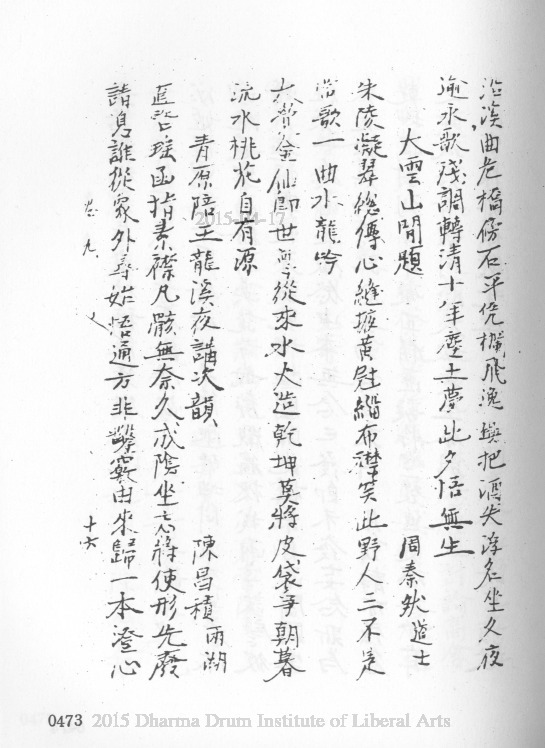 沿溪曲危橋傍石平凭欄飛逸 把酒失浮名坐久夜
逾永歌殘調轉清十年塵土夢此夕悟無生
大雲山閒題 周秦 道士
朱陵凝翠總傳心縫掖黃 緇布襟笑此野人三不是
常歌一曲水龍吟
大覺金仙即世尊從來水火造乾坤莫將皮袋爭朝暮
流水桃花自有源
青原陪王龍溪夜話次韻 陳昌積 兩湖
瑤函指素襟凡骸無奈久成陰坐忘將使形先廢
請息誰從象外尋始悟通方非 由來歸一本澄心
卷九 十六
2015-04-17
0473 2015 Dharma Drum Institute of Liberal Arts